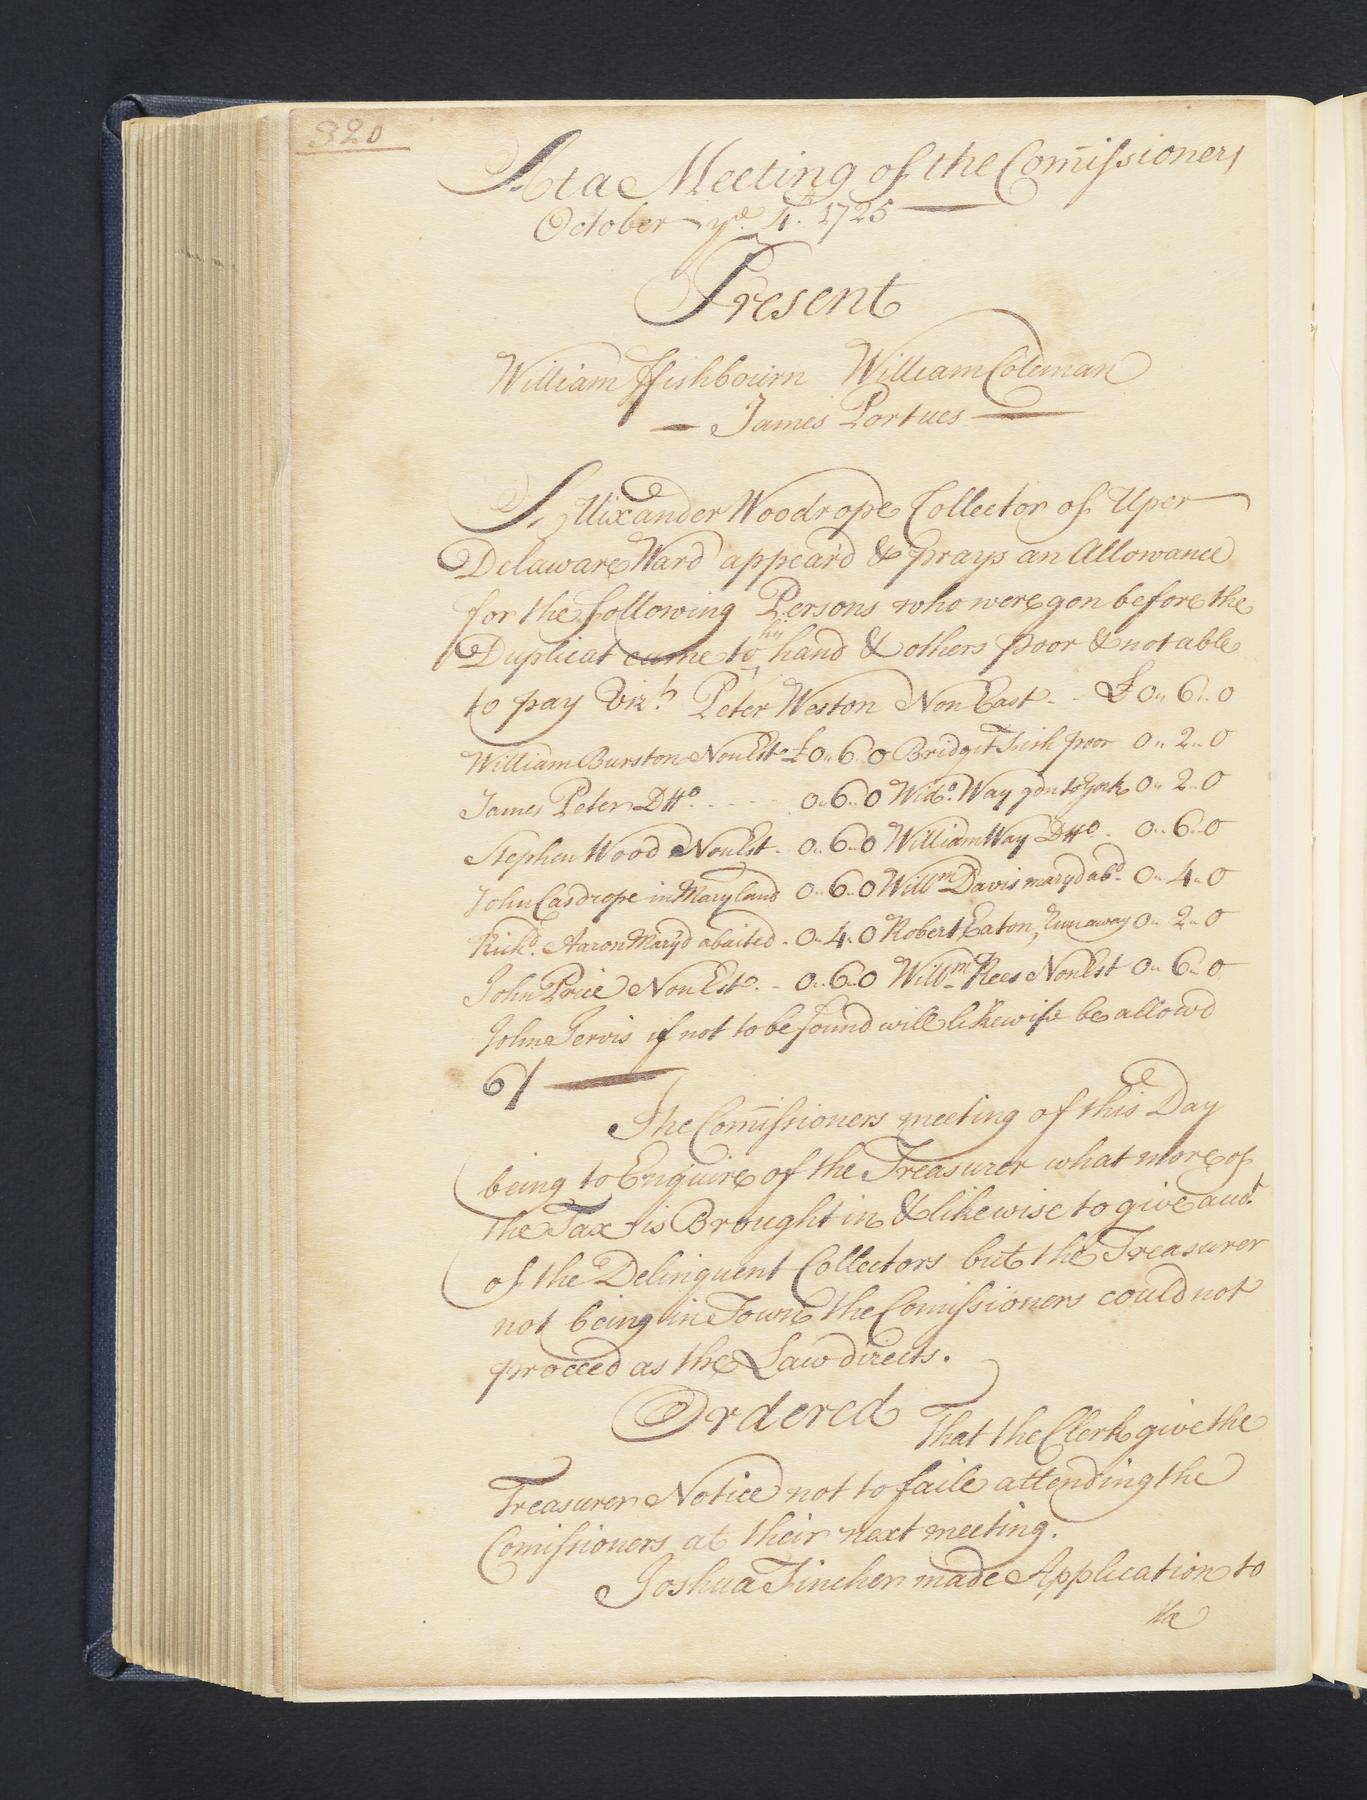 320
At a Meeting of the Com̄issioners
October ye. 4. 1725
Present
William Ffishbourn William Coleman
James Portues
Allixander Woodrope Collector of Uper
Delaware Ward appeard & prays an Allowance
for the following Persons who were gon before the
Duplicat came to his hand & others poor & not able
to pay Vizt. Peter Weston Non East - - £ 0 .. 6 .. 0
William Burston Non Est £ 0 .. 6 .. 0 Bridget Irish poor 0 .. 2 .. 0
James Peter Ditto - - - - 0 .. 6 .. 0 Wido. Way gon to York 0 .. 2 .. 0
Stephen Wood Non Est - 0 .. 6 .. 0 William Way Ditto - 0 .. 6 .. 0
John Casdrope in Maryland 0 .. 6 .. 0 Willm Davis maryd abd. 0 .. 4 .. 0
Richd. Aaron Maryd abaited - 0 .. 4 .. 0 Robert Eaton, Runaway 0 .. 2 .. 0
John Price Non Est. - 0 .. 6 .. 0 Willm. Rees Non Est 0 .. 6 .. 0
John Jervis if not to be found will likewise be allowd
6/
The Com̄issioners meeting of this Day
being to Enquire of the Treasurer what more of
the Tax is Brought in & likewise to give audt.
of the Delinquent Collectors but the Treasurer
not being in Town the Comissioners could not
proceed as the Law directs.
Ordered That the Clerk give the
Treasurer Notice not to faile attending the
Comissioners at their next meeting.
Joshua Fincher made Application to
the